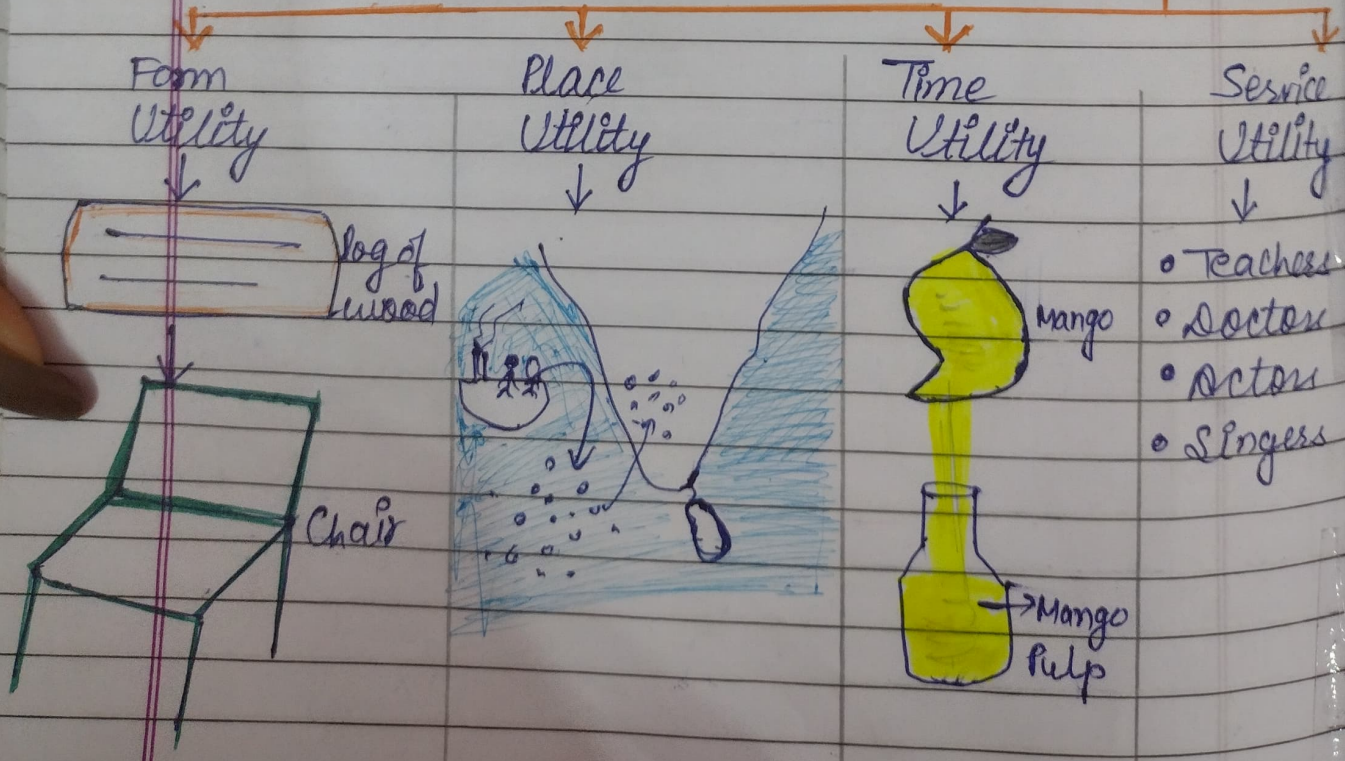 Form
Utility
Log of
wood
Chair
Place
Utility
Time
Utility
Mango
Mango
Pulp
Service
Utility
Teachers
Doctors
Actors
Singers